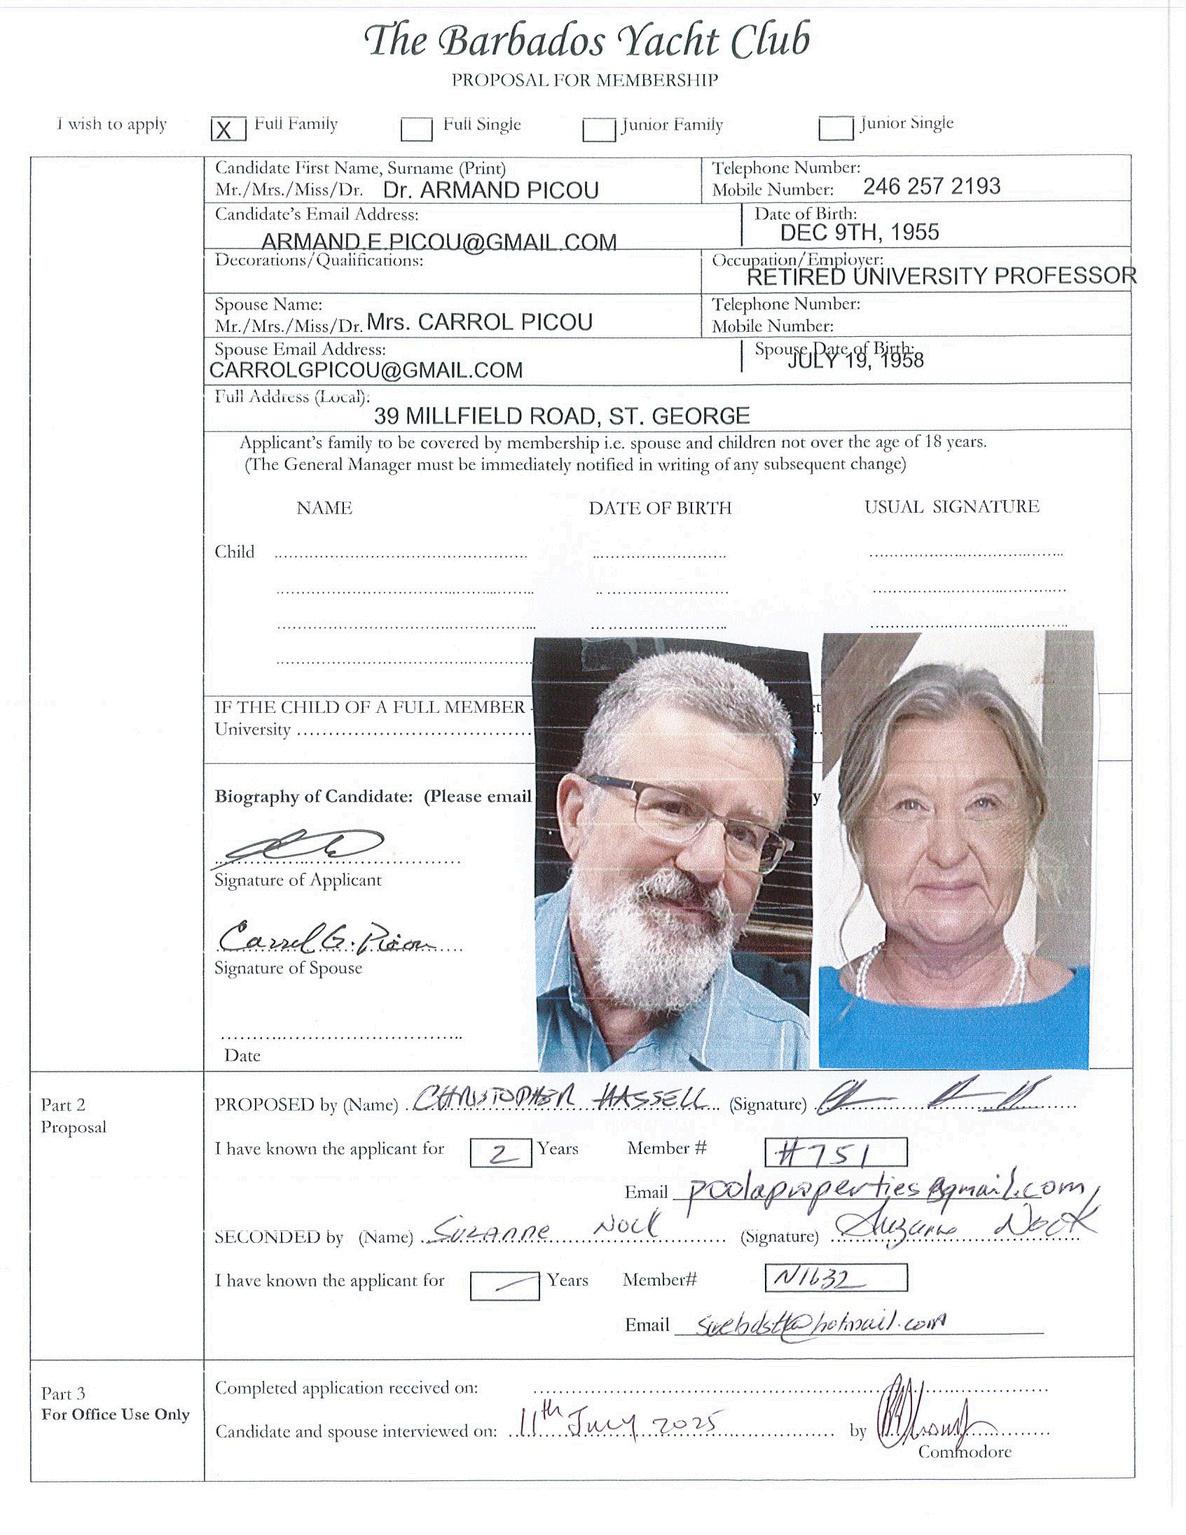 The Barbados Yacht Club
PROPOSAL FOR MEMBERSHIP
I wish to apply X Full Family Full Single Junior Family Junior Single
Candidate First Name, Surname (Print) Telephone Number:
Mr./Mrs./Miss/Dr. Dr. ARMAND PICOU Mobile Number: 246 257 2193
Candidate's Email Address: Date of Birth:
ARMAND.E.PICOU@GMAIL.COM DEC 9TH, 1955
Decorations/Qualifications: Occupation/Employer:
RETIRED UNIVERSITY PROFESSOR
Spouse Name: Telephone Number:
Mr./Mrs./Miss/Dr. Mrs. CARROL PICOU Mobile Number:
Spouse Email Address: Spouse Date of Birth:
CARROLGPICOU@GMAIL.COM JULY 19, 1958
Full Address (Local):
39 MILLFIELD ROAD, ST. GEORGE
Applicant's family to be covered by membership i.e. spouse and children not over the age of 18 years.
(The General Manager must be immediately notified in writing of any subsequent change)
NAME DATE OF BIRTH USUAL SIGNATURE
Child
IF THE CHILD OF A FULL MEMBER
University
Biography of Candidate: (Please email
Signature of Applicant
Carrol G. Picou
Signature of Spouse
Date
Part 2
Proposal
PROPOSED by (Name) CHRISTOPHER HASSELL (Signature)
I have known the applicant for 2 Years Member # #751
Email poolaproperties@gmail.com
SECONDED by (Name) Suzanne Nock (Signature) Suzanne Nock
I have known the applicant for Years Member# N1632
Email
Part 3
For Office Use Only
Completed application received on:
Candidate and spouse interviewed on: 11th July 2025 by
Commodore